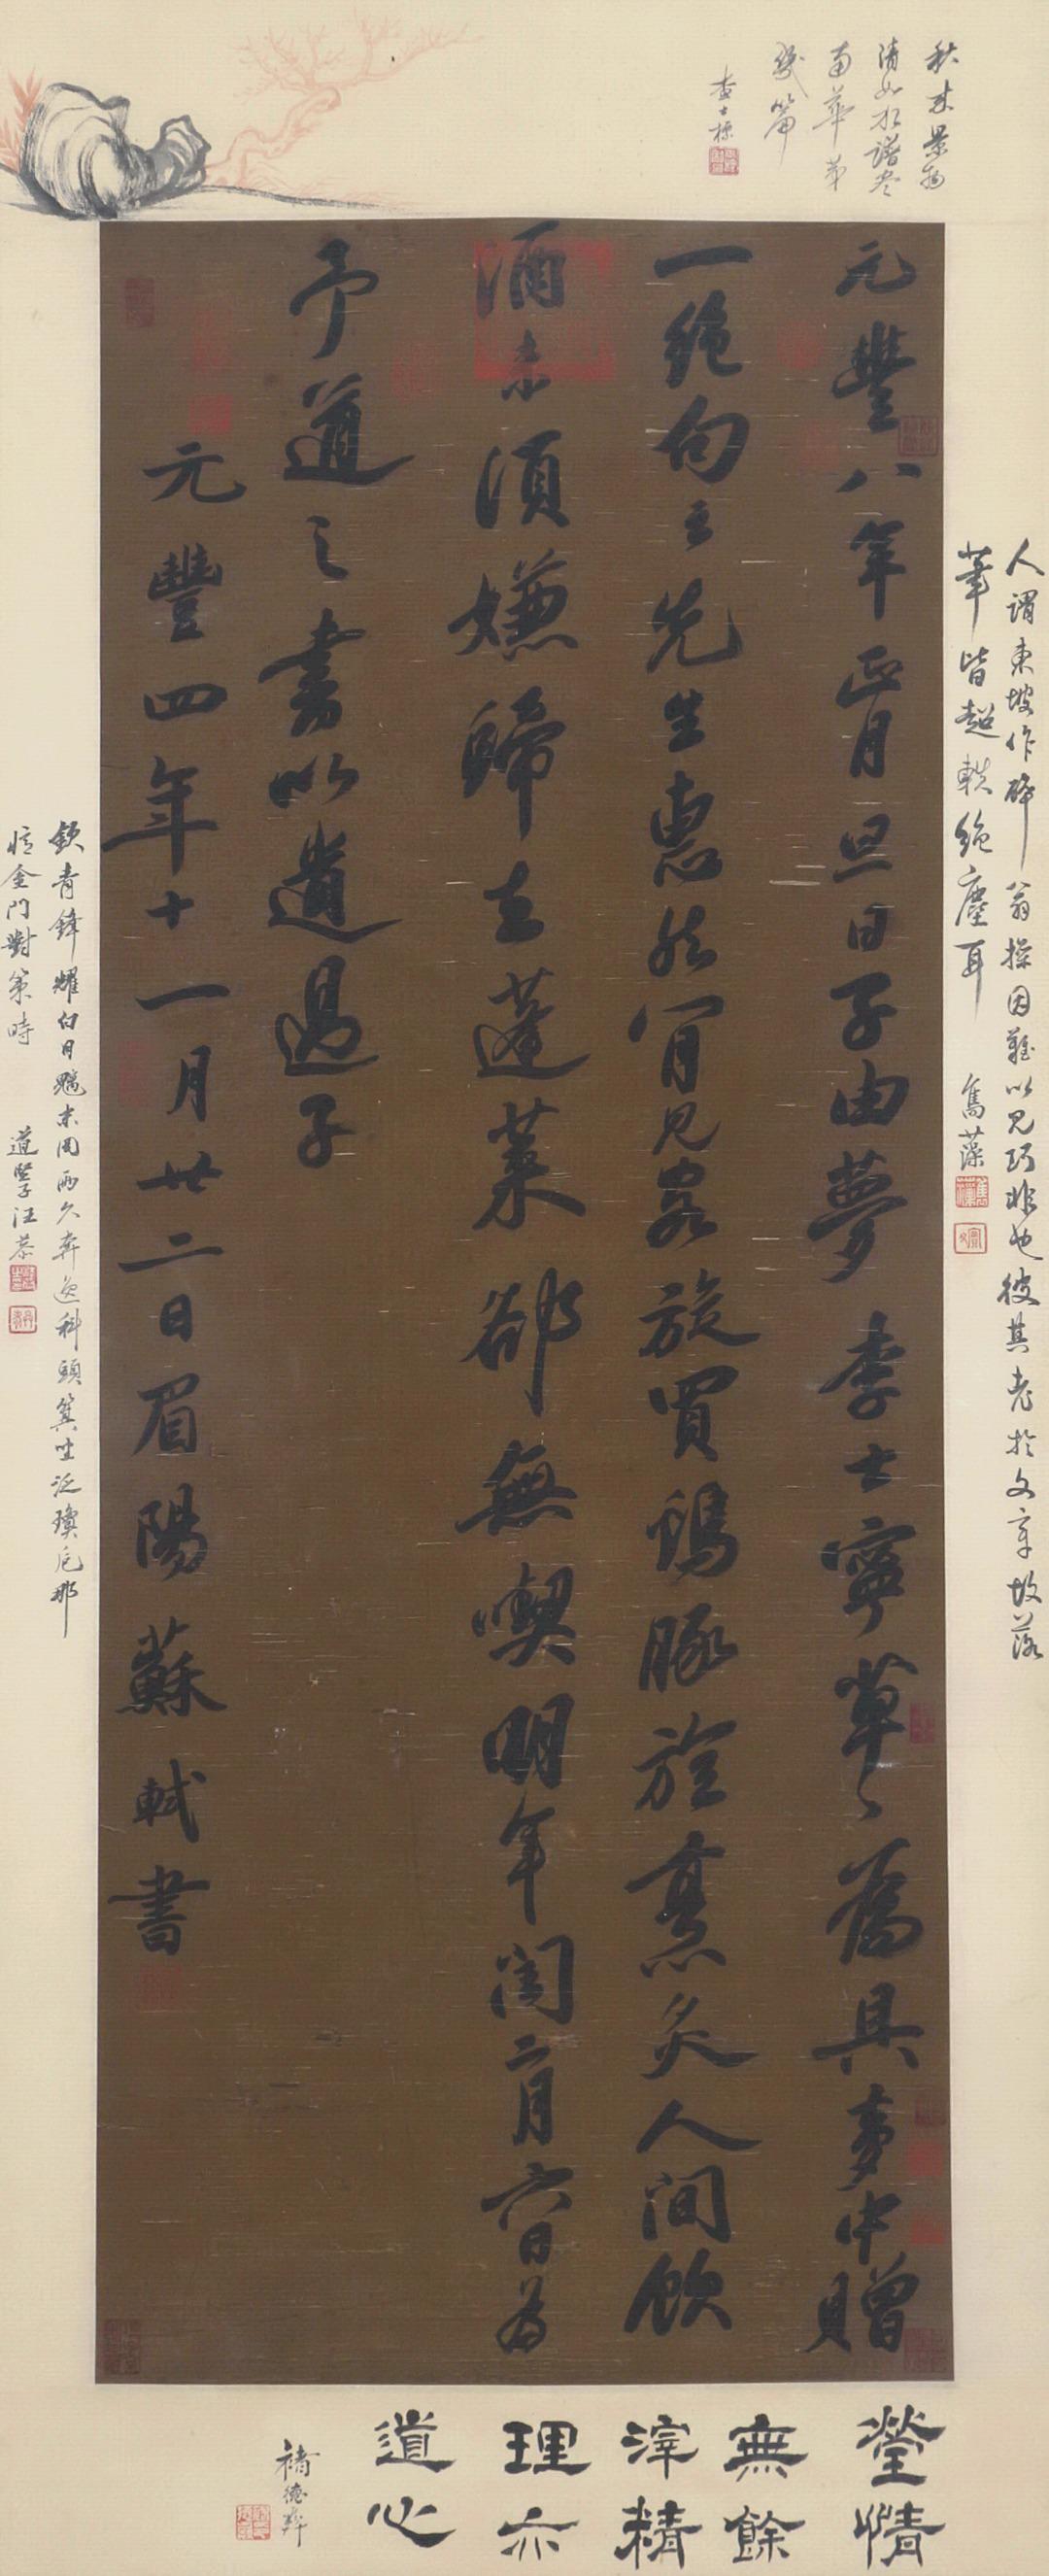 元豐八年正月旦日子由夢李士寧草〻為具夢中贈
一絕句云先生惠然肯見客旋買鷄豚旋烹炙人間飲
酒未須嫌歸去蓬萊却無喫明年閏二月六日為
予道之書以遺過子
元豐四年十一月廿二日眉陽蘇軾書
秋來景物
清如水譜卷
南華第
幾篇
查士標
人謂東坡作醉翁操因難以見巧非也彼其老於文章故落
筆皆超軼絕塵耳 雋藻
欽青鋒耀白日 未周兩久奔逸科頭箕坐泛瓊卮那
憶金門對策時 道學汪恭
瑩情
無餘
滓精
理亦
道心
褚德彝